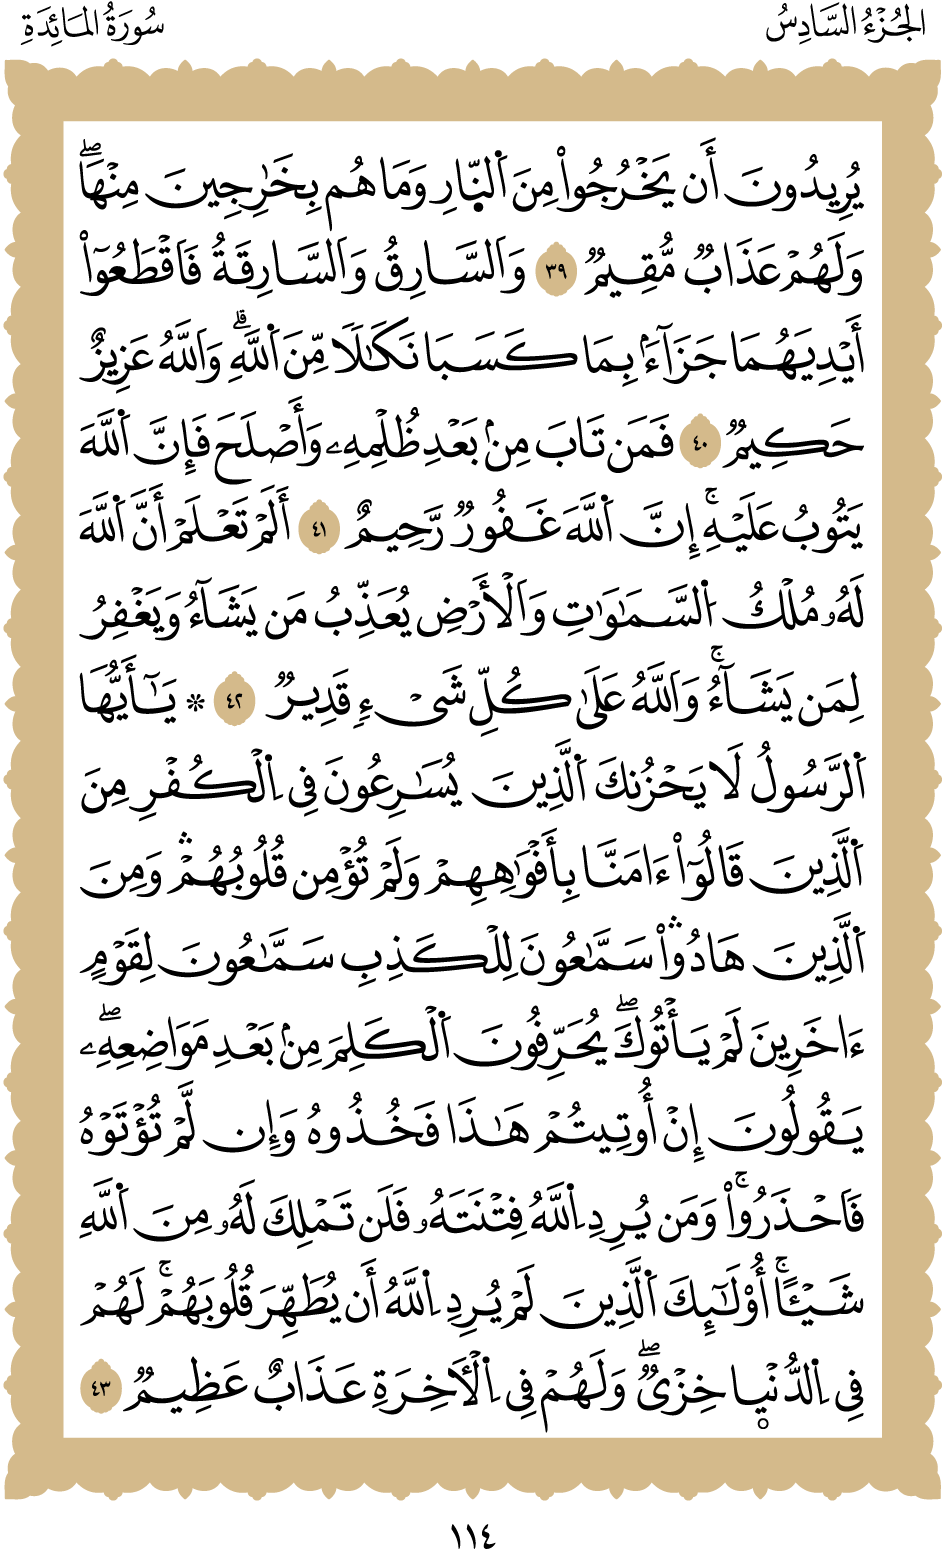 الجُزْءُ السَّادِسُ
سُورَةُ المَائِدَةِ
يُرِيدُونَ أَن يَخْرُجُواْ مِنَ اَ۬لنّ۪ارِ وَمَا هُم بِخَٰرِجِينَ مِنْهَاۖ
وَلَهُمْ عَذَابٌ مُّقِيمٌ ٣٩ وَالسَّارِقُ وَالسَّارِقَةُ فَاقْطَعُوٓاْ
أَيْدِيَهُمَا جَزَآءَۢ بِمَا كَسَبَا نَكَٰلًا مِّنَ اَ۬للَّهِۗ وَاللَّهُ عَزِيزٌ
حَكِيمٌ ٤٠ فَمَن تَابَ مِنۢ بَعْدِ ظُلْمِهِۦ وَأَصْلَحَ فَإِنَّ اَ۬للَّهَ
يَتُوبُ عَلَيْهِۚ إِنَّ اَ۬للَّهَ غَفُورٌ رَّحِيمٌ ٤١ أَلَمْ تَعْلَمْ أَنَّ اَ۬للَّهَ
لَهُۥ مُلْكُ اُ۬لسَّمَٰوَٰتِ وَالْأَرْضِ يُعَذِّبُ مَن يَشَآءُ وَيَغْفِرُ
لِمَن يَشَآءُۚ وَاللَّهُ عَلَىٰ كُلِّ شَيْءٍ قَدِيرٌ ٤٢ * يَٰٓأَيُّهَا
اَ۬لرَّسُولُ لَا يَحْزُنكَ اَ۬لَّذِينَ يُسَٰرِعُونَ فِي اِ۬لْكُفْرِ مِنَ
اَ۬لَّذِينَ قَالُوٓاْ ءَامَنَّا بِأَفْوَٰهِهِمْ وَلَمْ تُؤْمِن قُلُوبُهُمْۛ وَمِنَ
اَ۬لَّذِينَ هَادُواْۛ سَمَّٰعُونَ لِلْكَذِبِ سَمَّٰعُونَ لِقَوْمٍ
ءَاخَرِينَ لَمْ يَأْتُوكَۖ يُحَرِّفُونَ اَ۬لْكَلِمَ مِنۢ بَعْدِ مَوَاضِعِهِۦۖ
يَقُولُونَ إِنْ أُوتِيتُمْ هَٰذَا فَخُذُوهُ وَإِن لَّمْ تُؤْتَوْهُ
فَاحْذَرُواْۚ وَمَن يُرِدِ اِ۬للَّهُ فِتْنَتَهُۥ فَلَن تَمْلِكَ لَهُۥ مِنَ اَ۬للَّهِ
شَيْـًٔاۚ أُوْلَٰٓئِكَ اَ۬لَّذِينَ لَمْ يُرِدِ اِ۬للَّهُ أَن يُطَهِّرَ قُلُوبَهُمْۚ لَهُمْ
فِي اِ۬لدُّنْي۪ا خِزْيٌۖ وَلَهُمْ فِي اِ۬لْأٓخِرَةِ عَذَابٌ عَظِيمٌ ٤٣
١١٤